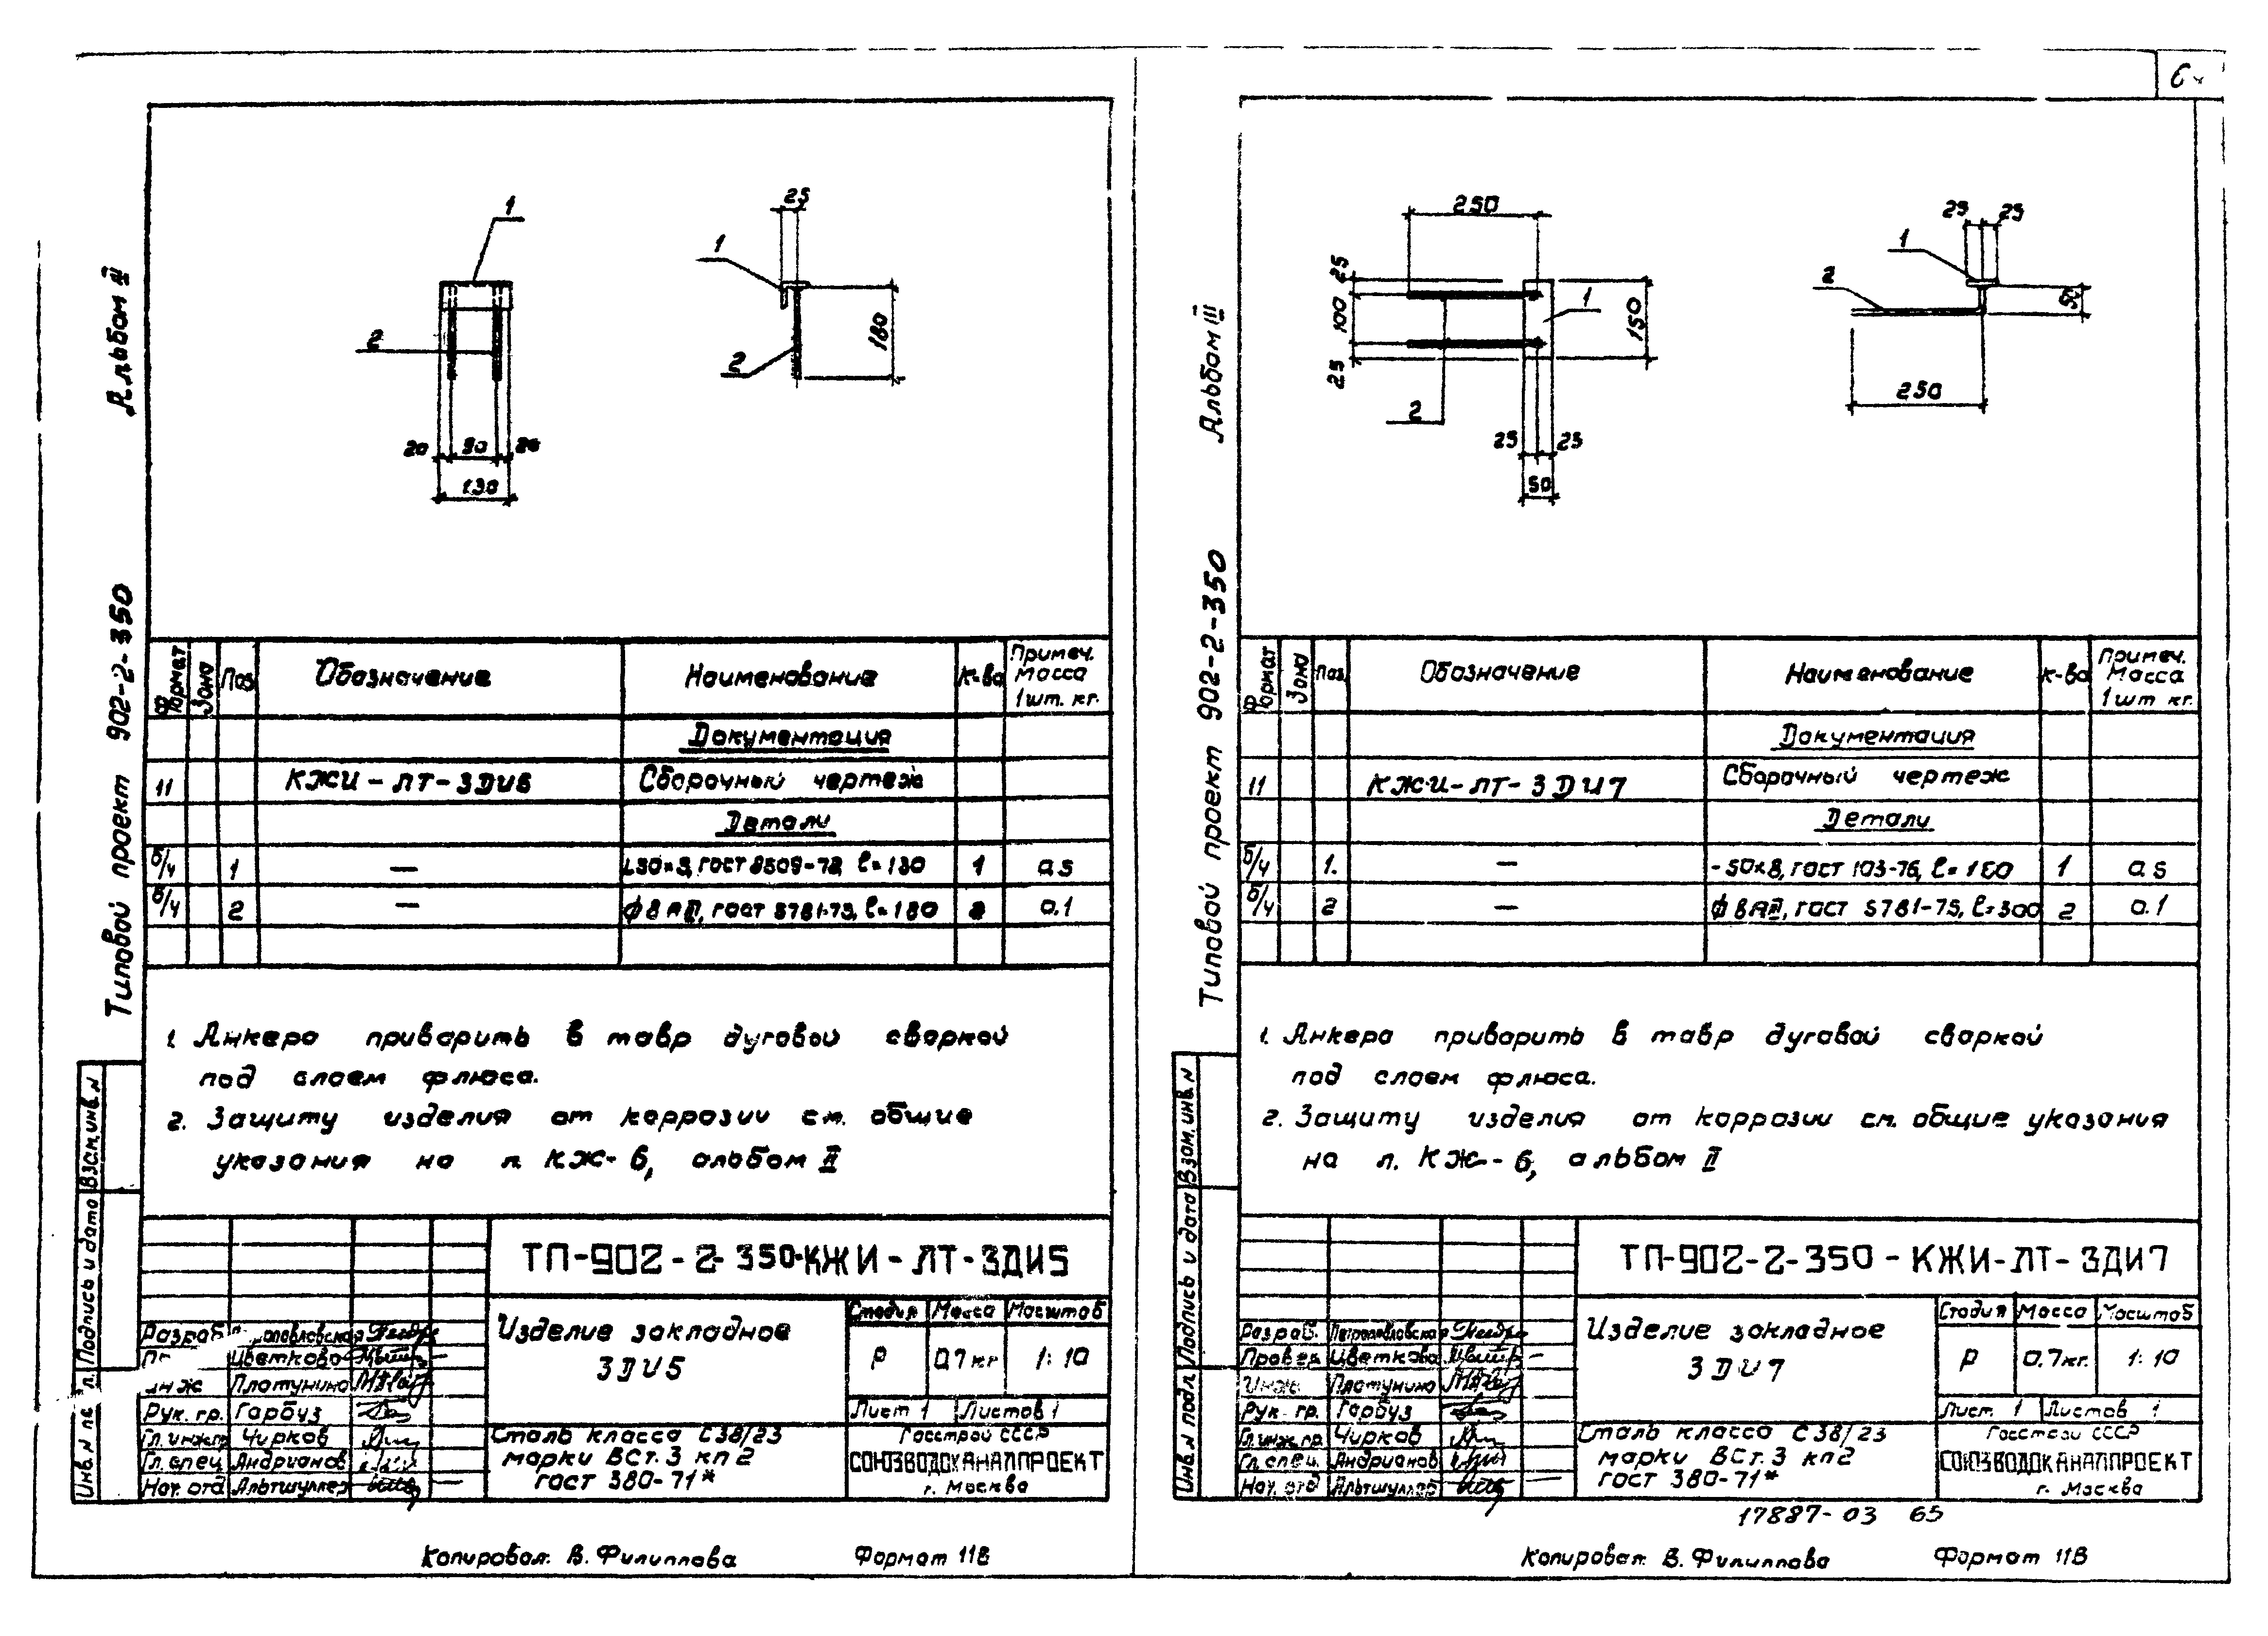 Альбом III
Типовой проект 902-2-350
1
2
20 90 20
130
25
1
2
180
Формат
Зона
Поз.
Обозначение
Наименование
К-во
Примеч. Масса 1шт. кг.
Документация
11 КЖИ-ЛТ-ЗДИ5 Сборочный чертеж
Детали
б/ч 1 — L50×5, ГОСТ 8509-72, ℓ=130 1 0.5
б/ч 2 — ϕ8АIII, ГОСТ 5781-75, ℓ=180 2 0.1
1. Анкера приварить в тавр дуговой сваркой
под слоем флюса.
2. Защиту изделия от коррозии см. общие
указания на л. КЖ-6, альбом II
Взам. инв. N
Подпись и дата
Инв. N
ТП-902-2-350-КЖИ-ЛТ-ЗДИ5
Изделие закладное
ЗДИ5
Стадия Масса Масштаб
Р 0.7кг 1:10
Лист 1 Листов 1
Разраб.
Цветкова
Инж Платунина
Рук. гр. Гарбуз
Гл.инж.пр Чирков
Гл. спец Андрианов
Нач. отд Альтшуллер
Сталь класса С38/23
марки ВСт.3 кп2
ГОСТ 380-71*
Госстрой СССР
СОЮЗВОДОКАНАЛПРОЕКТ
г. Москва
Копировал: В. Филиппова Формат 11В
Альбом III
Типовой проект 902-2-350
250
25
100
25
1
150
2
25 25
50
25 25
1
2
50
250
Формат
Зона
Поз.
Обозначение
Наименование
К-во
Примеч. Масса 1шт кг.
Документация
11 КЖИ-ЛТ-ЗДИ7 Сборочный чертеж
Детали
б/ч 1. — -50×8, ГОСТ 103-76, ℓ=150 1 0.5
б/ч 2 — ϕ8АIII, ГОСТ 5781-75, ℓ=300 2 0.1
1. Анкера приварить в тавр дуговой сваркой
под слоем флюса.
2. Защиту изделия от коррозии см. общие указания
на л. КЖ-6, альбом II
Взам. инв. N
Подпись и дата
Инв. N подл.
ТП-902-2-350-КЖИ-ЛТ-ЗДИ7
Изделие закладное
ЗДИ7
Стадия Масса Масштаб
Р 0.7кг. 1:10
Лист 1 Листов 1
Разраб. Петропавловская
Провер. Цветкова
Инж. Платунина
Рук. гр. Гарбуз
Гл.инж.гр. Чирков
Гл.спец. Андрианов
Нач. отд Альтшуллер
Сталь класса С38/23
марки ВСт.3 кп2
ГОСТ 380-71*
Госстрой СССР
СОЮЗВОДОКАНАЛПРОЕКТ
г. Москва
17887-03 65
Копировал: В. Филиппова Формат 11В